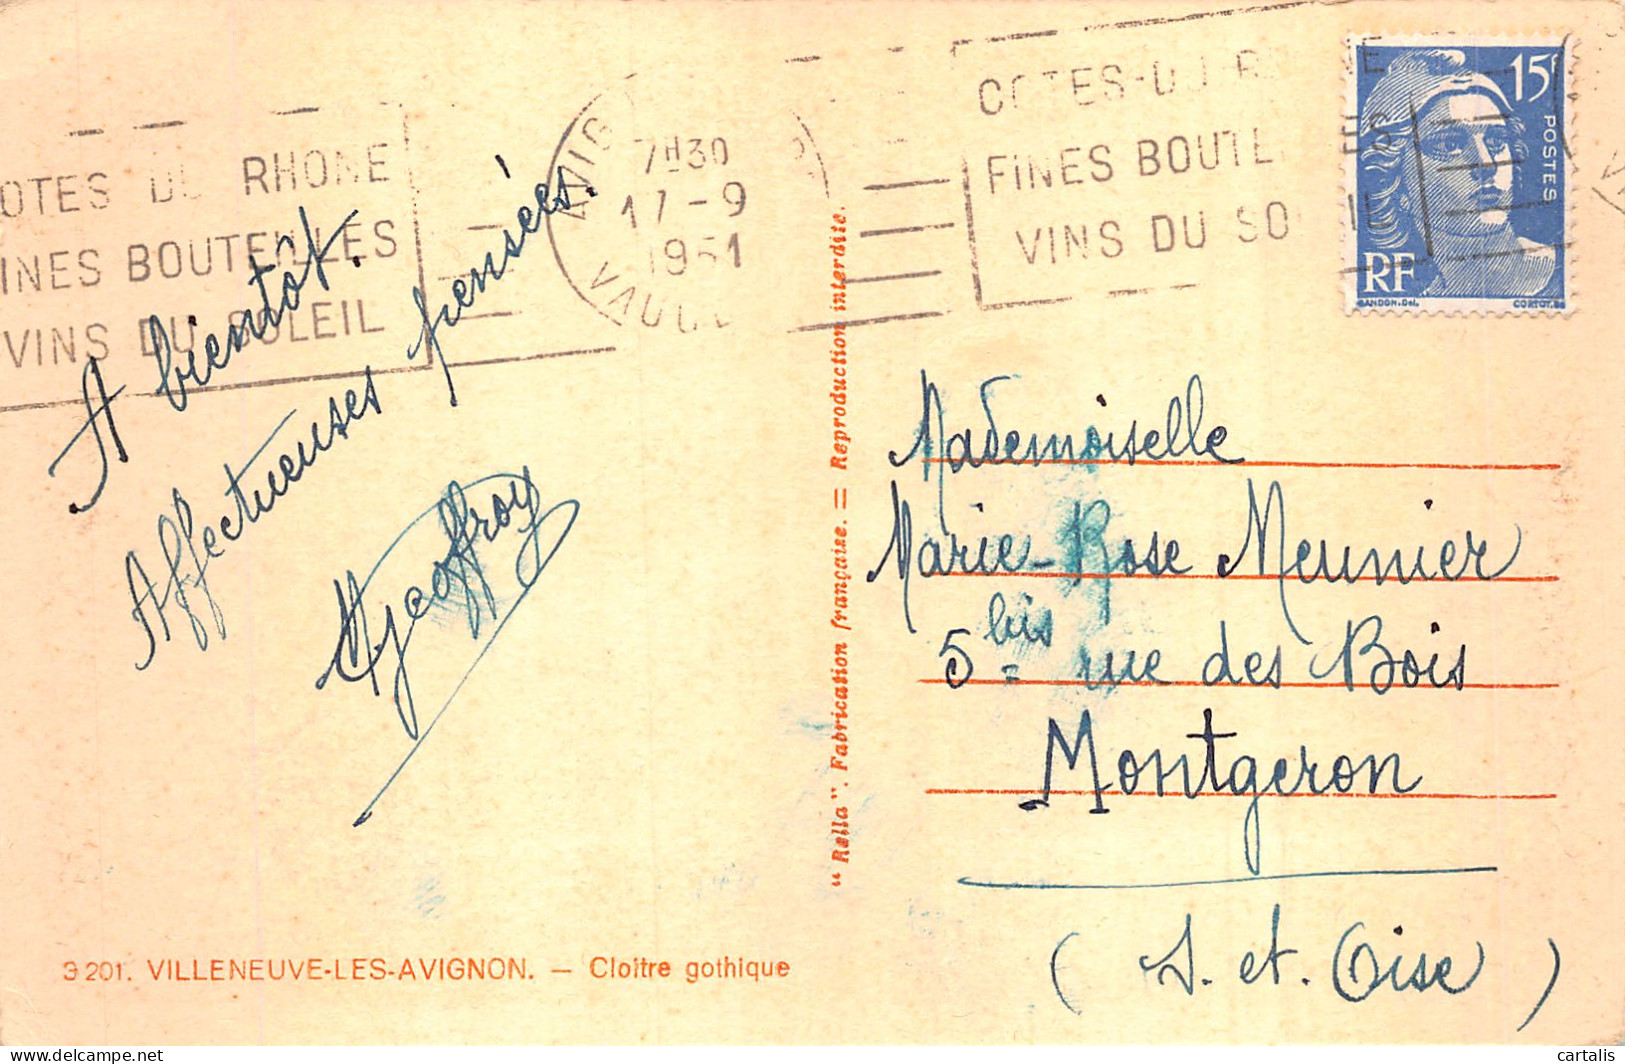 OTES DU RHONE
INES BOUTEILLES
VINS DU SOLEIL
7H30
17-9
1951
COTES-DU-RHONE
FINES BOUTEILLES
VINS DU SOLEIL
15F
POSTES
RF
GANDON.Del.
A bientôt.
Affectueuses pensées.
Geoffroy
"Rella". Fabrication française. = Reproduction interdite.
Mademoiselle
Marie-Rose Meunier
5 bis rue des Bois
Montgeron
(S. et. Oise)
3201. VILLENEUVE-LES-AVIGNON. — Cloitre gothique
cartalis